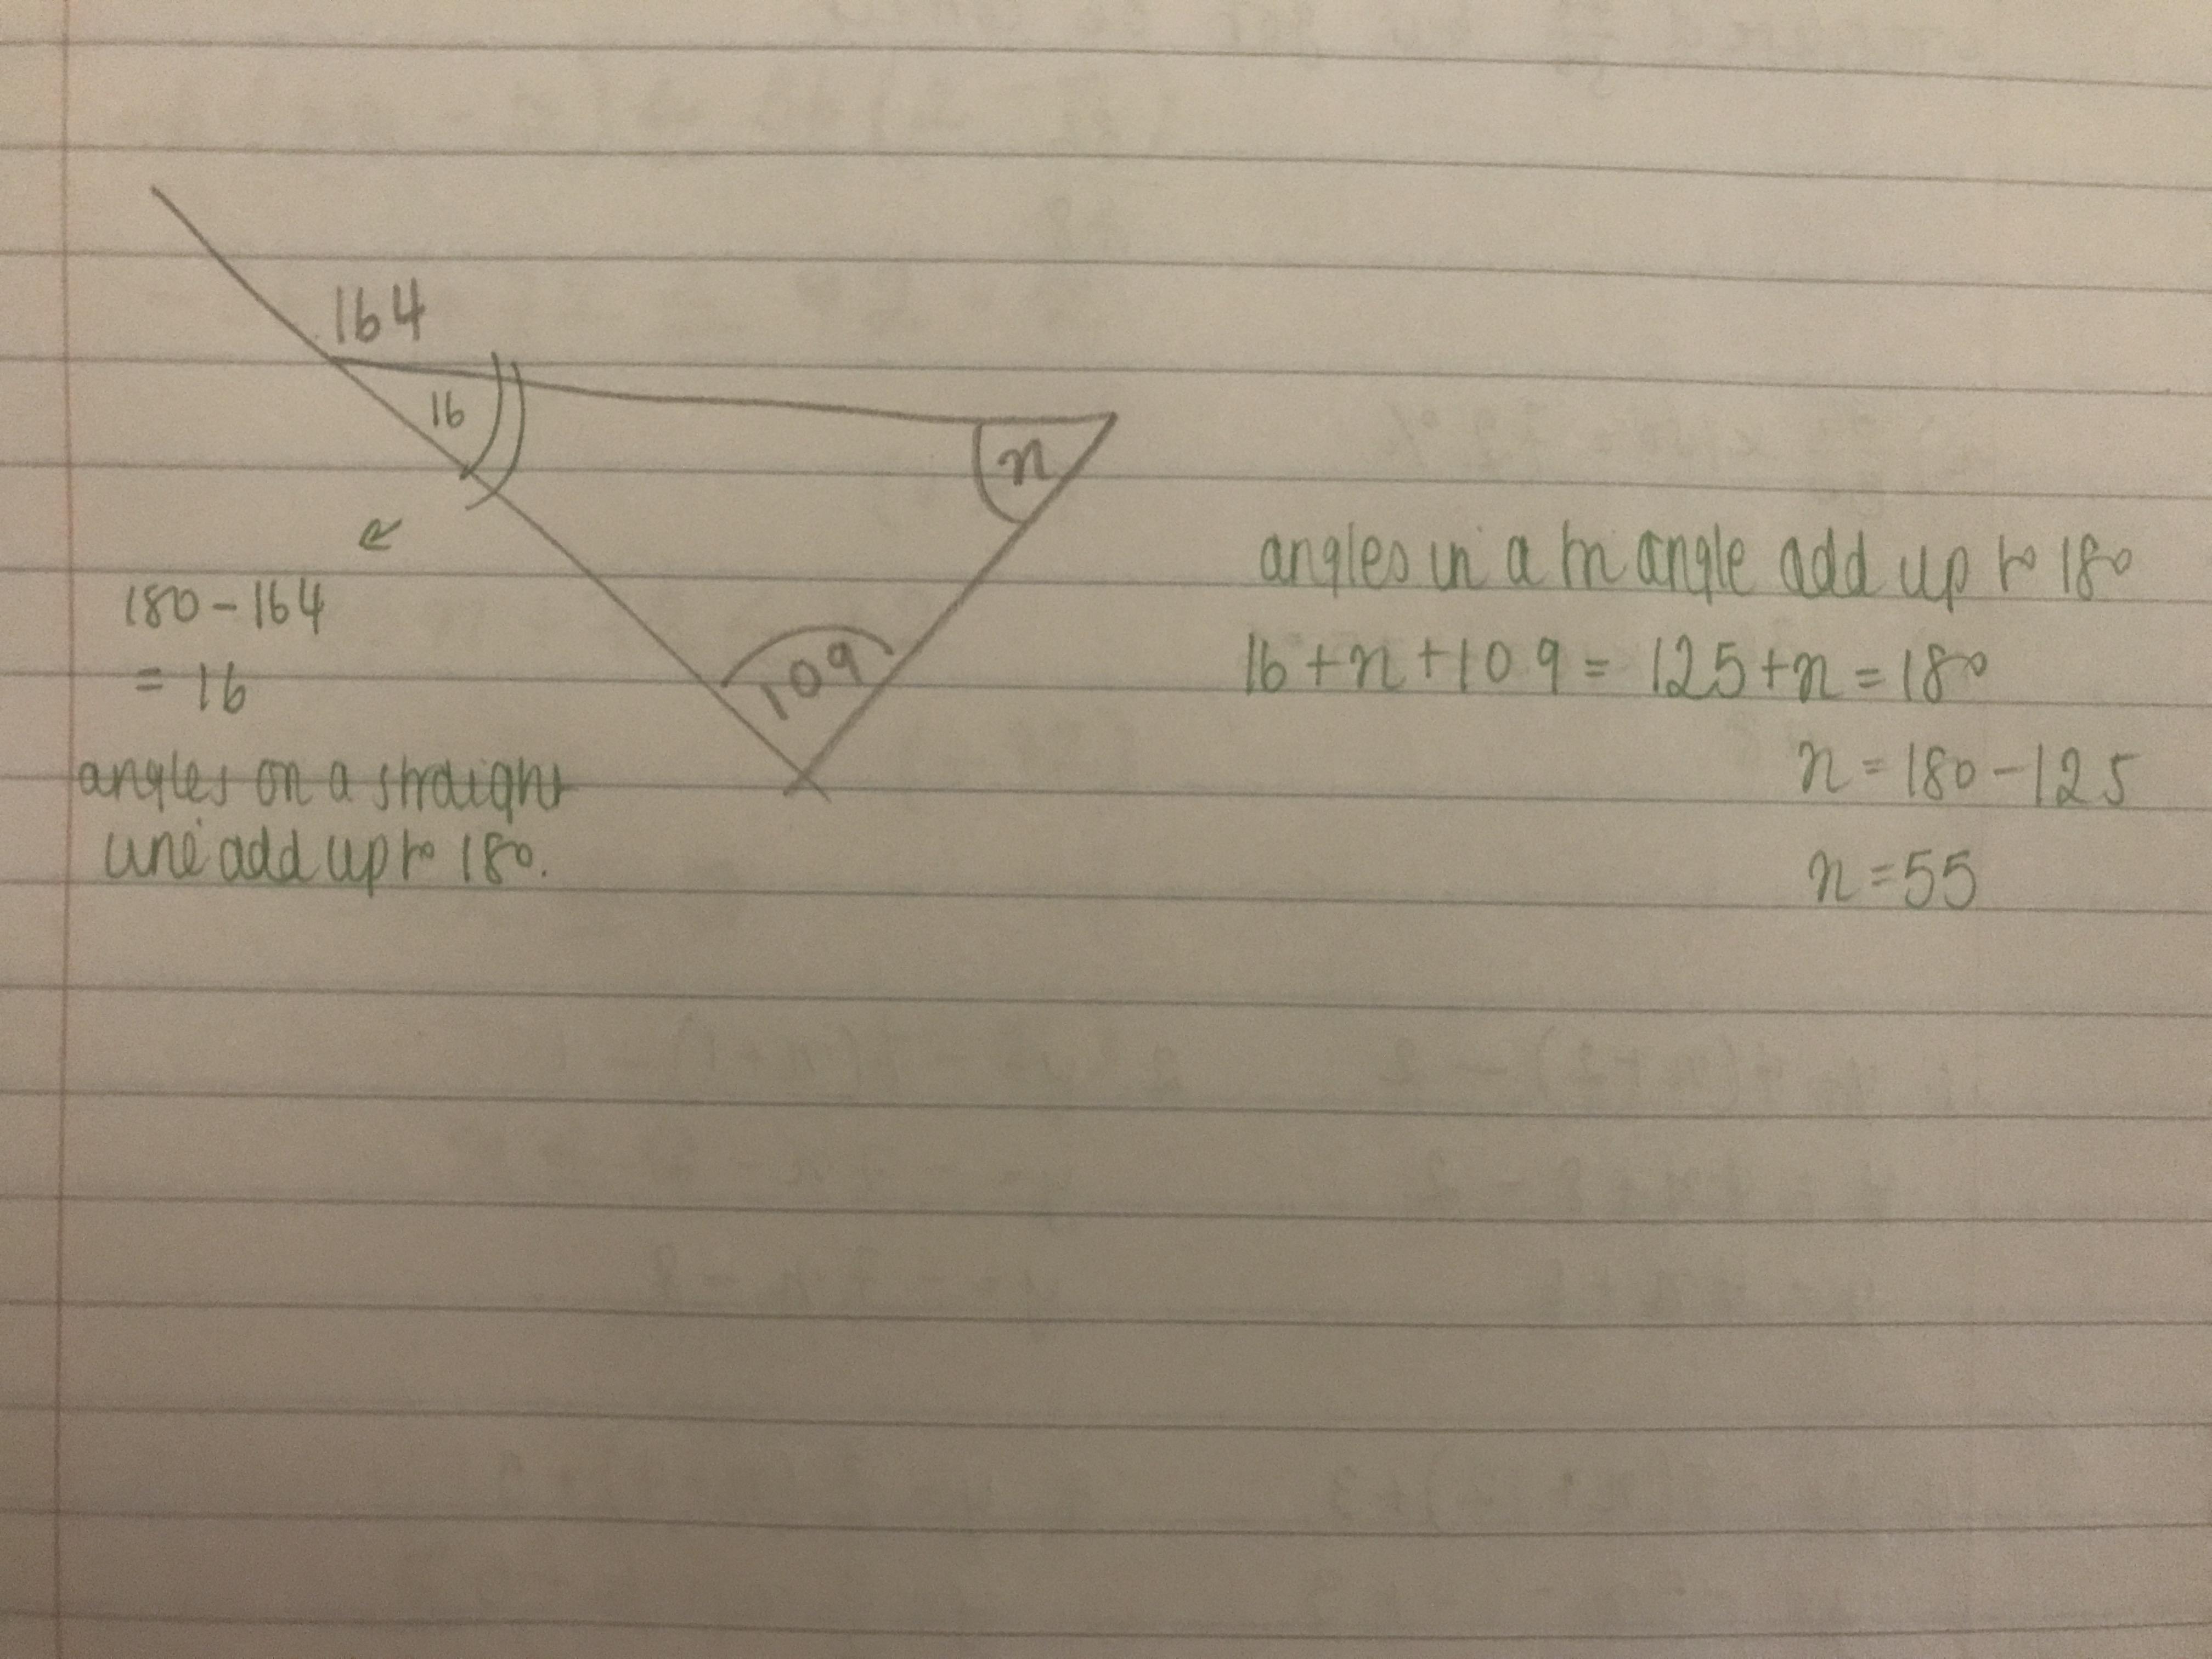 164
16
n
109
180-164
= 16
angles on a straight
line add up to 180.
angles in a triangle add up to 180
16+n+109= 125+n=180
n=180-125
n=55